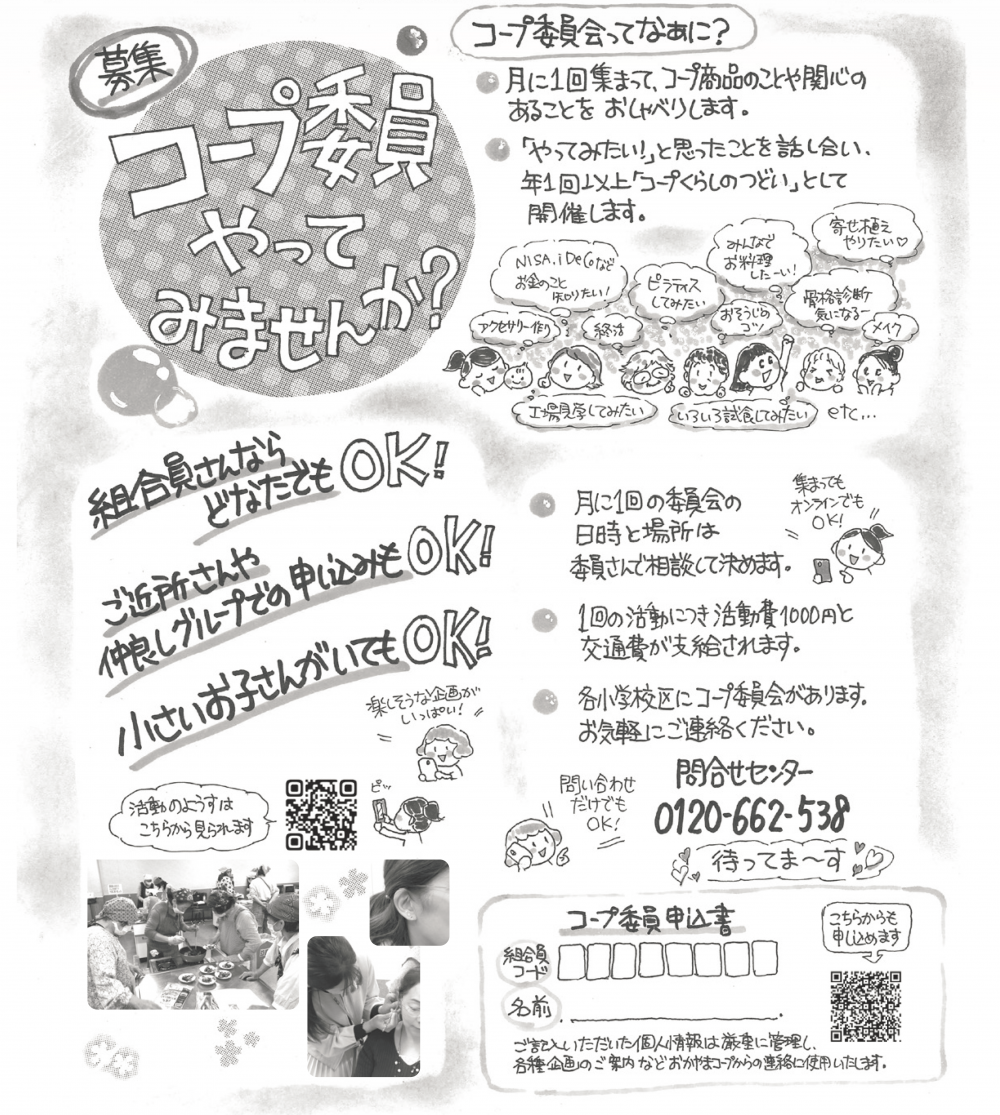 募集
コープ委員
やって
みませんか?
コープ委員会ってなぁに?
月に1回集まって、コープ商品のことや関心の
あることを おしゃべりします。
「やってみたい!」と思ったことを話し合い、
年1回以上「コープくらしのつどい」として
開催します。
NISA、iDeCoなど
お金のこと
知りたい!
ピラティス
してみたい
みんなで
お料理
したーい!
寄せ植え
やりたい♡
アクセサリー作り
終活
おそうじの
コツ
骨格診断
気になるー
メイク
工場見学してみたい
いろいろ試食してみたい
etc...
組合員さんなら
どなたでもOK!
ご近所さんや
仲良しグループでの申し込みもOK!
小さいお子さんがいてもOK!
楽しそうな企画が
いっぱい!
活動のようすは
こちらから見られます
ピッ
月に1回の委員会の
日時と場所は
委員さんで相談して決めます。
集まっても
オンラインでも
OK!
1回の活動につき活動費1000円と
交通費が支給されます。
各小学校区にコープ委員会があります。
お気軽にご連絡ください。
問い合わせ
だけでも
OK!
問合せセンター
0120-662-538
待ってま〜す
コープ委員申込書
組合員
コード
名前
こちらからも
申し込めます
ご記入いただいた個人情報は厳重に管理し、
各種企画のご案内などおかやまコープからの連絡に使用いたします。